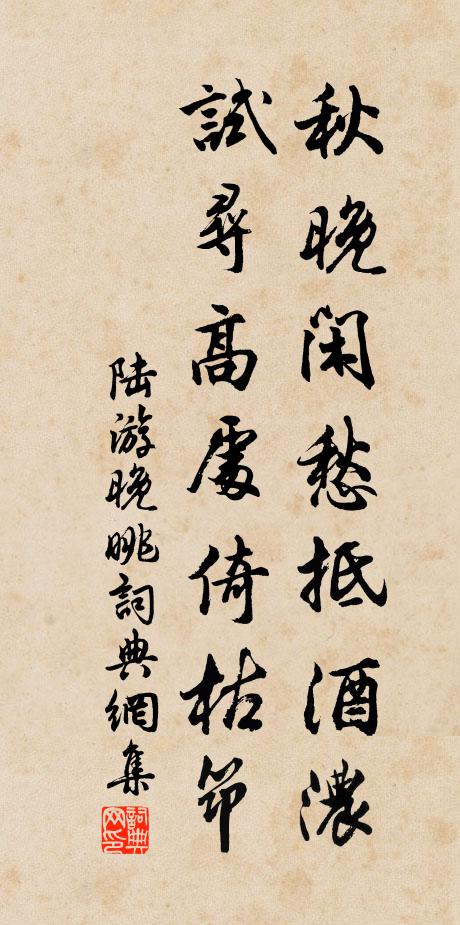 秋晚閑愁抵酒濃
試尋高處倚枯筇
陆游晚眺詞典網集
詞典网印